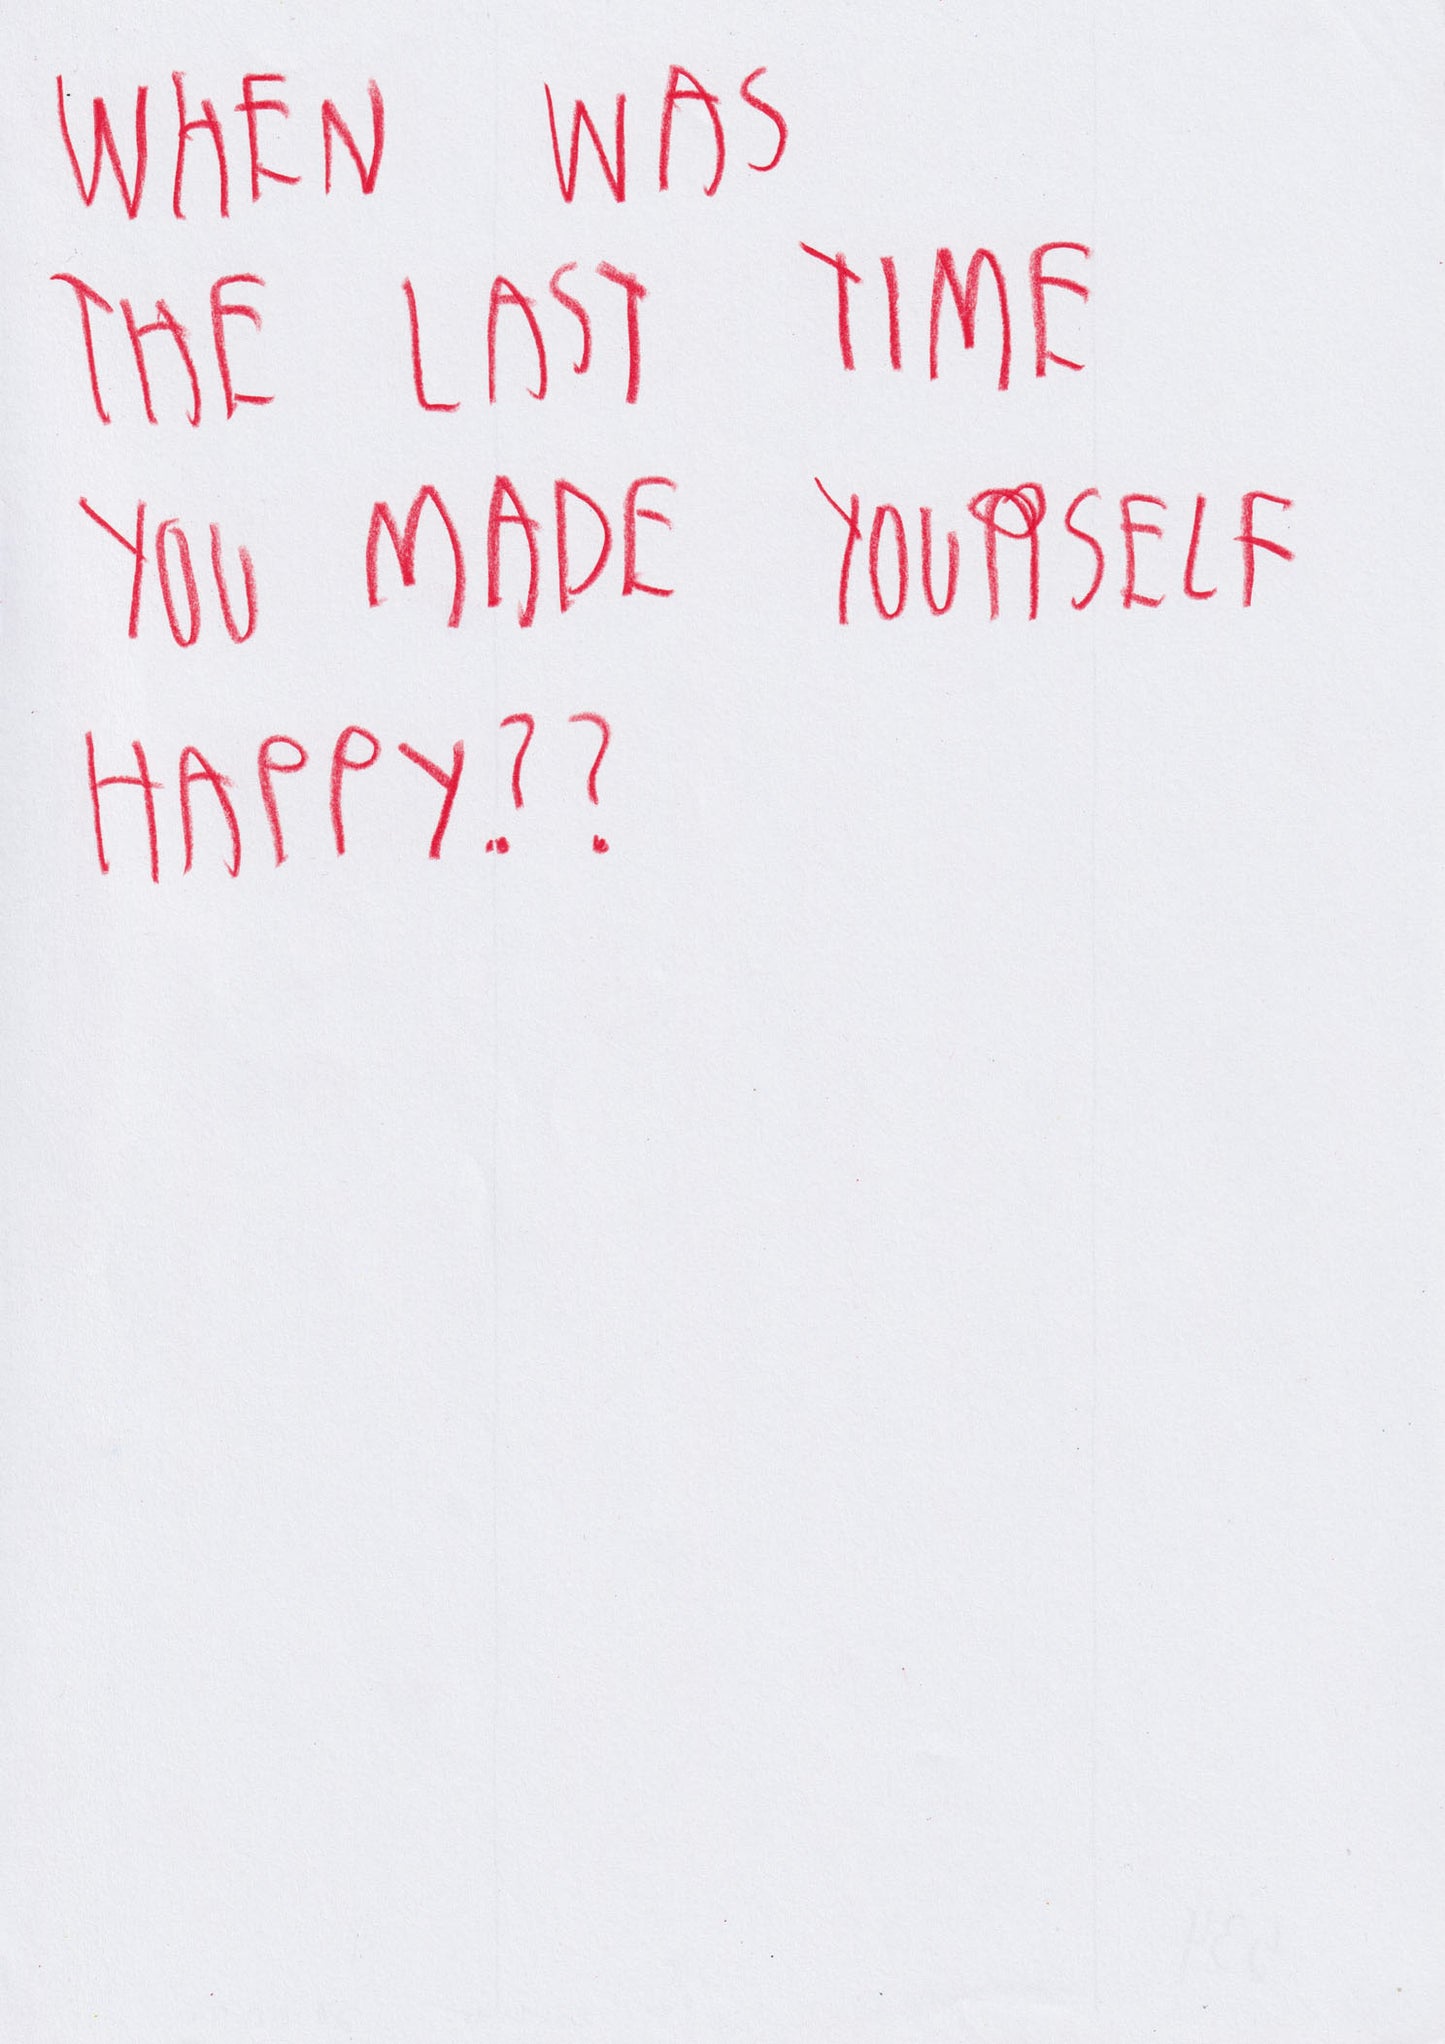 WHEN WAS
THE LAST TIME
YOU MADE YOURSELF
HAPPY??